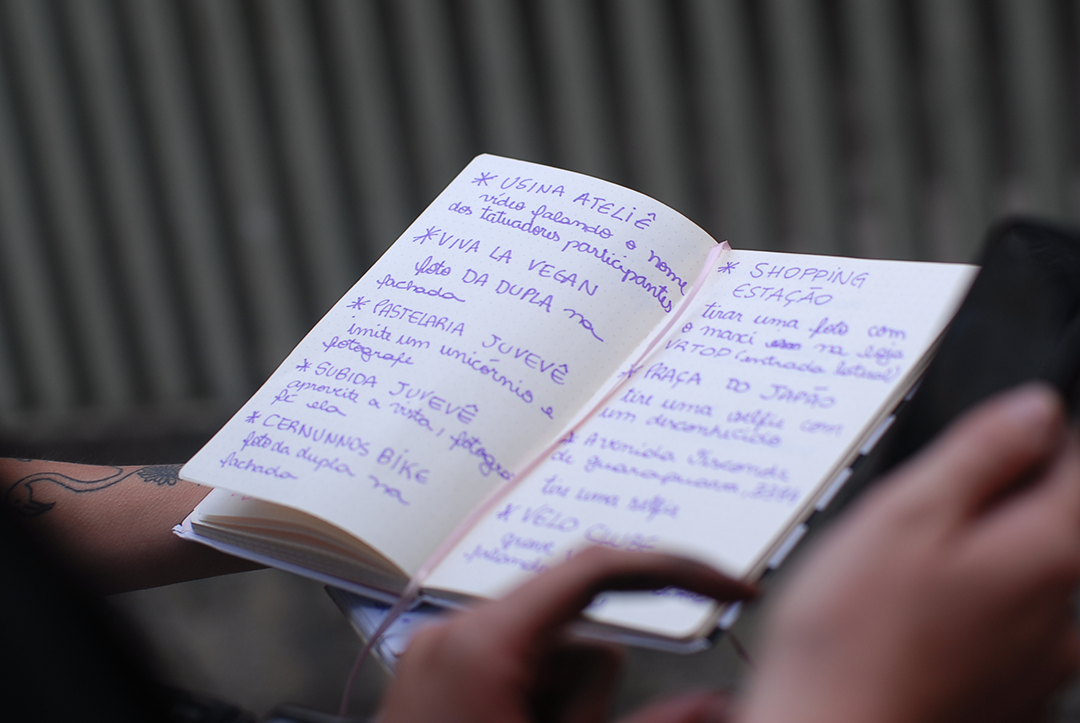 * USINA ATELIÊ
vídeo falando o nome
dos tatuadores participantes
* VIVA LA VEGAN
foto DA DUPLA na
fachada
* PASTELARIA JUVEVÊ
imite um unicórnio e
fotografe
* SUBIDA JUVEVÊ
aproveite a vista, fotogra
fe ela
* CERNUNNOS BIKE
foto da dupla na
fachada
* SHOPPING
ESTAÇÃO
tirar uma foto com
o maxi na loja
VRTOP (entrada lateral)
* PRAÇA DO JAPÃO
tire uma selfie com
um desconhecido
* Avenida Visconde
de guarapuava,
tire uma selfie
* VELO CLUBE
grave
falando